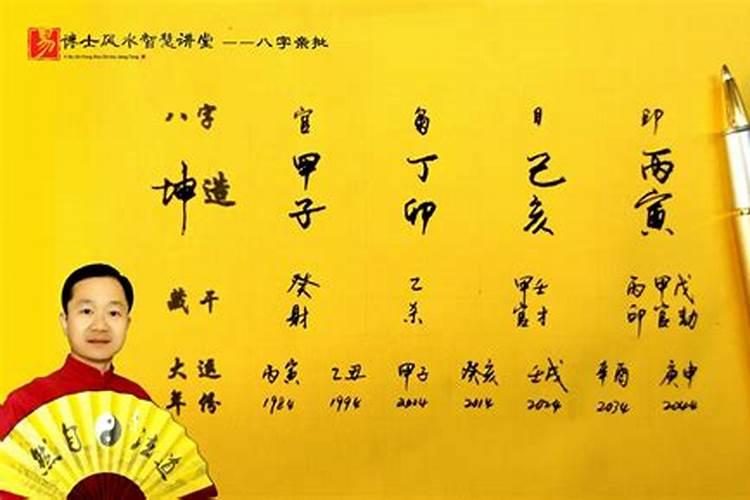 易 博士风水智慧讲堂 ——八字亲批
八字 官 日 印
坤造 甲子 丁卯 己亥 丙寅
藏干 癸 乙 甲壬 丙甲戊
财 杀 官才 印官劫
大运 丙寅 乙丑 甲子 癸亥 壬戌 辛酉 庚申
年份 1984 1994 2004 2014 2024 2034 2044
然自法道